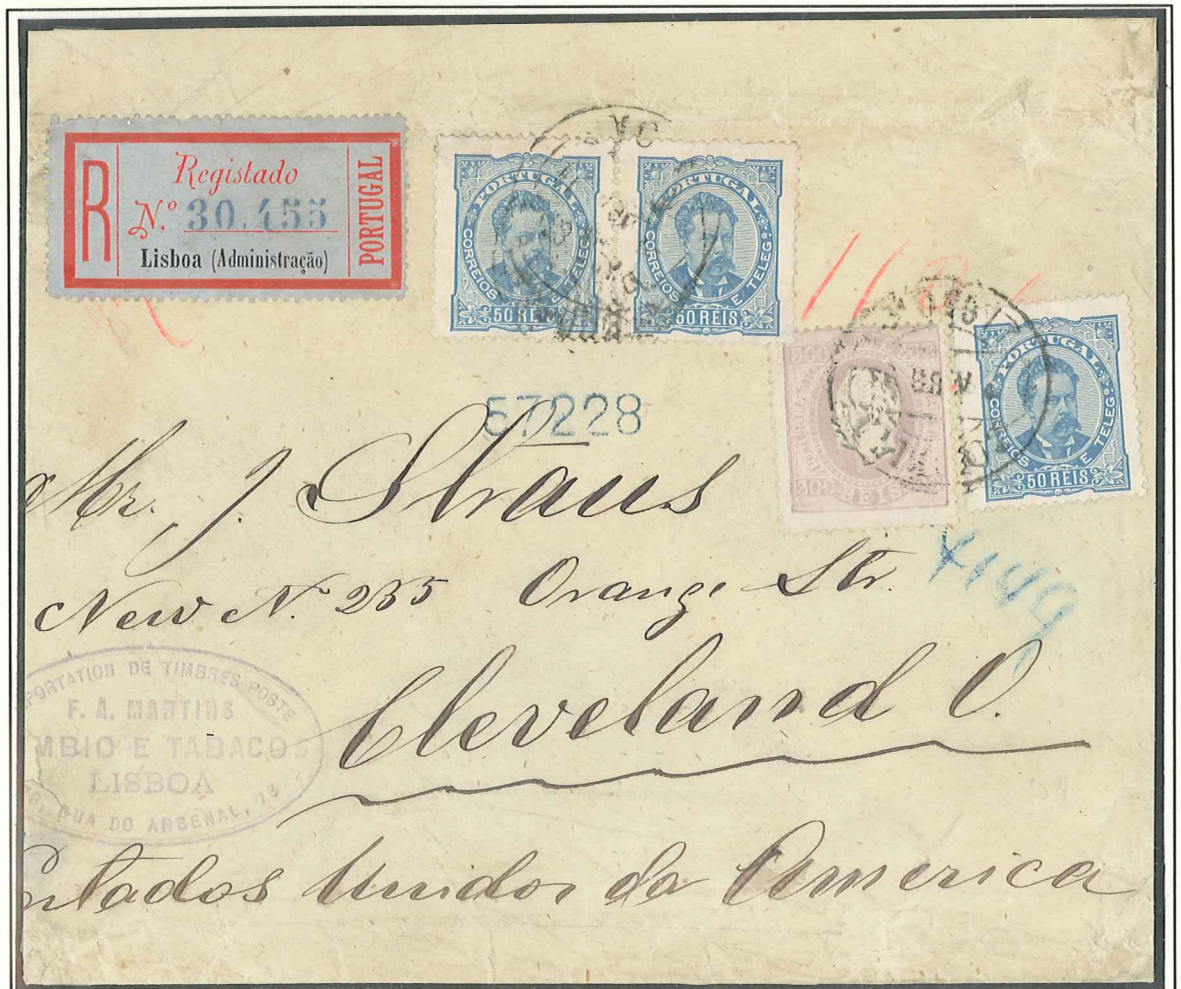 R
Registado
N.º 30.455
Lisboa (Administração)
PORTUGAL
PORTUGAL
CORREIOS E TELEG
50 REIS
PORTUGAL
CORREIOS E TELEG
50 REIS
REIS
PORTUGAL
CORREIOS E TELEG
50 REIS
57228
Mr. J. Straus
New N. 235 Orange Str.
Cleveland O.
Estados Unidos da America
PORTATION DE TIMBRES-POSTE
F. A. MARTINS
MBIO E TABACOS
LISBOA
RUA DO ARSENAL,